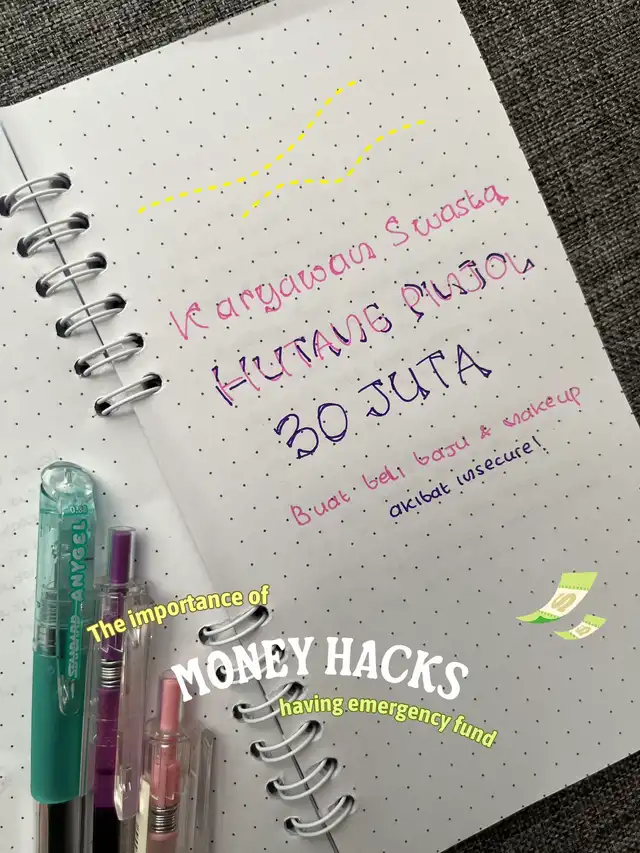 Karyawan Swasta
HUTANG PINJOL
30 JUTA
Buat beli baju & makeup
akibat insecure!
STANDARD ANYGEL
The importance of
MONEY HACKS
having emergency fund